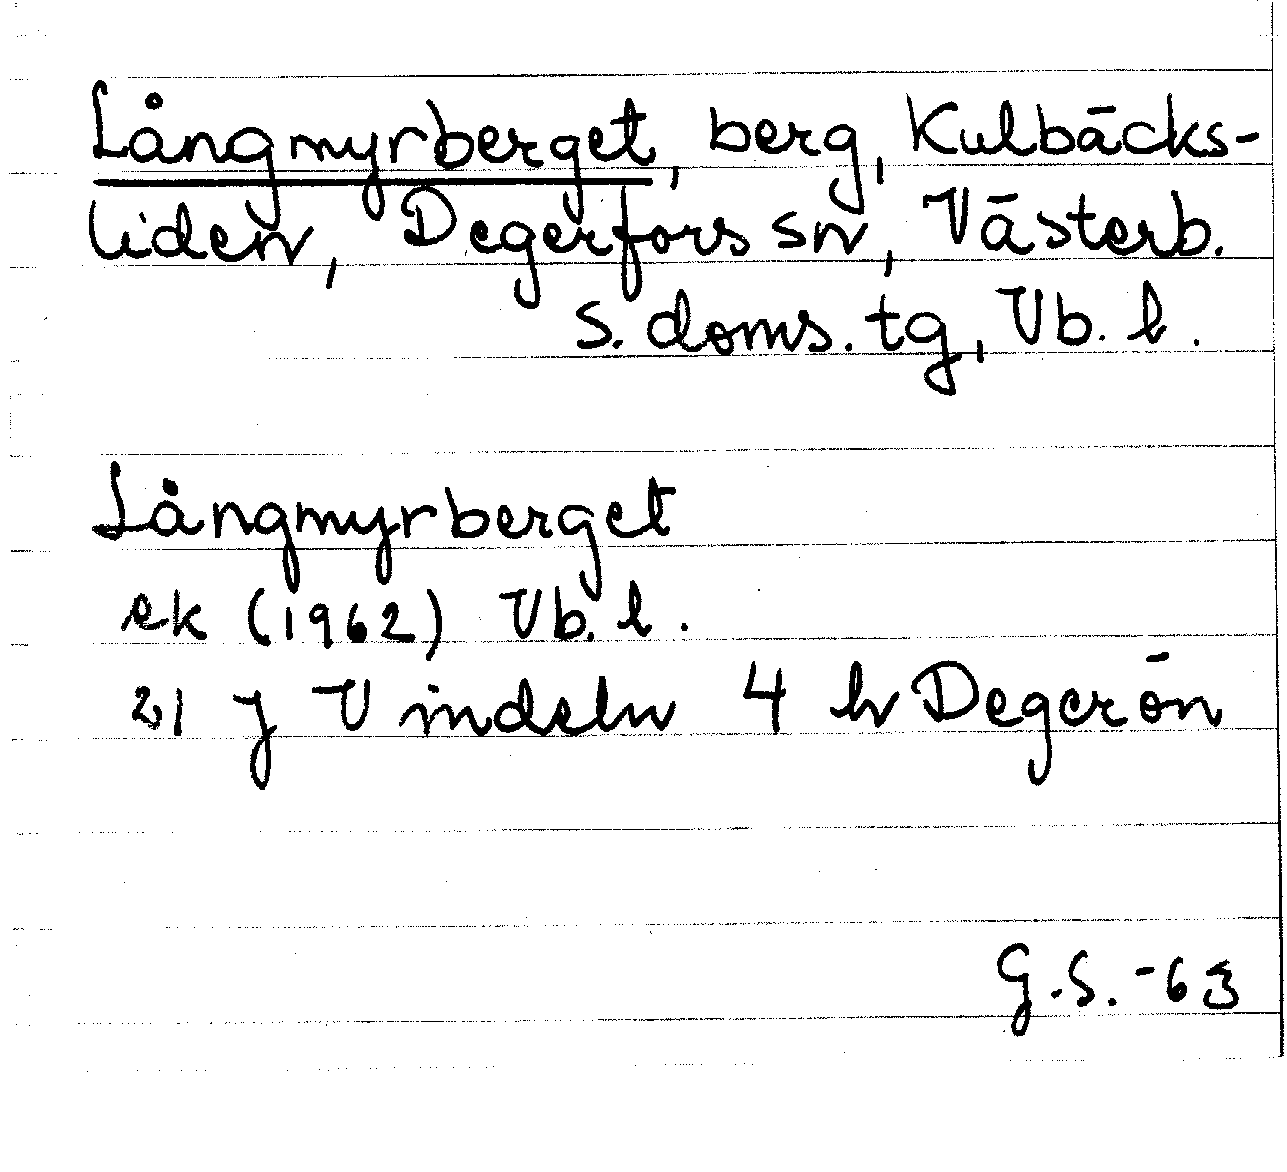 Långmyrberget, berg, Kulbäcks-
liden, Degerfors sn, Västerb.
s. doms. tg, Vb. l.
Långmyrberget
ek (1962) Vb. l.
21 J Vindeln 4 h Degerön
G.S. -63